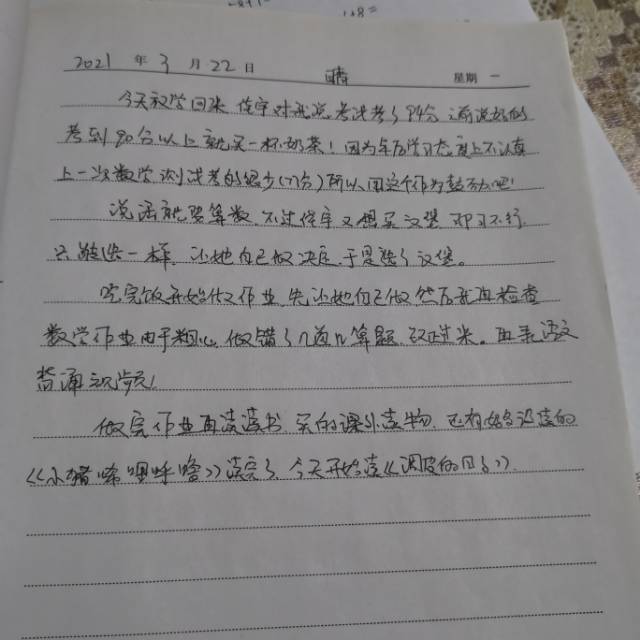 1+8=
2021 年 3 月 22 日 晴 星期 一
今天放学回来 佳宇对我说 考试考了94分 之前说好的
考到90分以上就买一杯奶茶！因为年后学习态度上不认真
上一次数学测试考的很少(71分)所以用这个作为鼓励吧！
说话就要算数，不过佳宇又想买汉堡 那可不行，
只能选一样，让她自己做决定，于是选了汉堡。
吃完饭开始做作业，先让她自己做 然后我再检查
数学作业由于粗心，做错了几道计算题，改过来。再弄语文
背诵 识字
做完作业再读读书，买的课外读物，还有她没读的
《小猪唏哩呼噜》读完了，今天开始读《调皮的日子》。